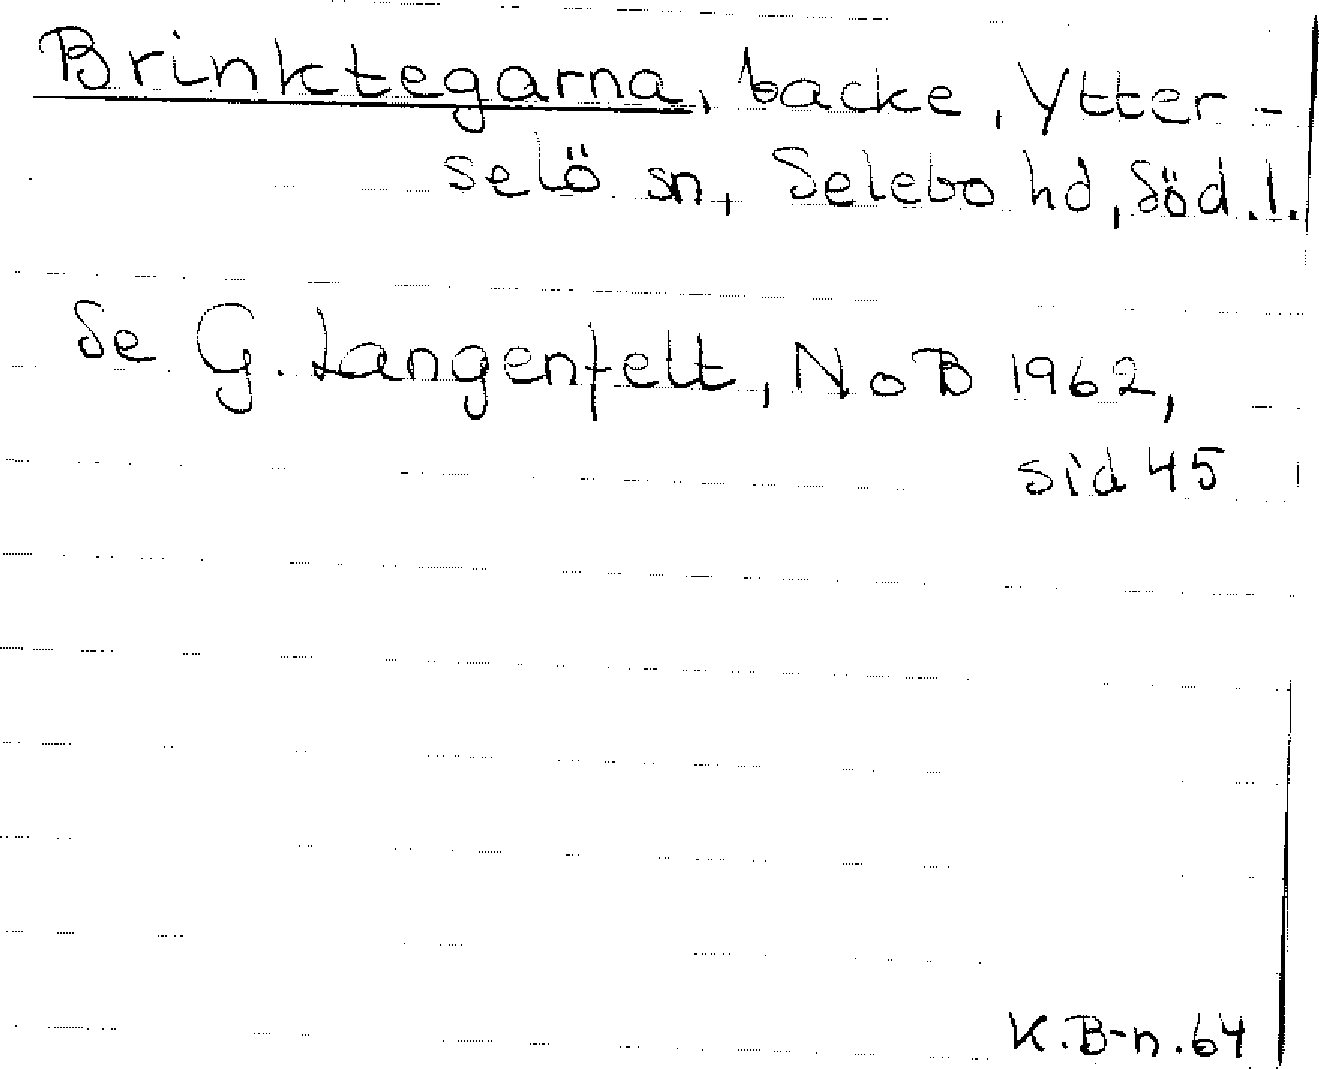 Brinktegarna, backe, Ytter-
selö sn, Selebo hd, Söd.l.
Se G. Langenfelt, NoB 1962,
sid 45
K.B-n.64